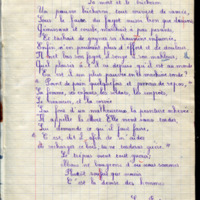 La mort et le bûcheron
Un pauvre bûcheron, tout couvert de ramée,
Sous le faix du fagot aussi bien que des ans
Gémissant et courbé, marchait à pas pesants,
Et tâchait de gagner sa chaumine enfumée.
Enfin n'en pouvant plus d'effort et de douleur,
Il met bas son fagot il songe à son malheur.
Quel plaisir a-t-il eu depuis qu'il est au monde
En est-il un plus pauvre en la machine ronde ?
Point de pain quelquefois et jamais de repos
Sa femme, ses enfants, les soldats, les impôts
Le créancier, et la corvée
Lui font d'un malheureux la peinture achevée.
Il appelle la Mort. Elle vient sans tarder
Lui demande ce qu'il faut faire.
C'est, dit-il afin de m'aider
A recharger ce bois, tu ne tarderas guère.
Le trépas vient tout guérir
Mais ne bougeons d'où nous sommes
Plutôt souffrir que mourir
C'est la devise des hommes.